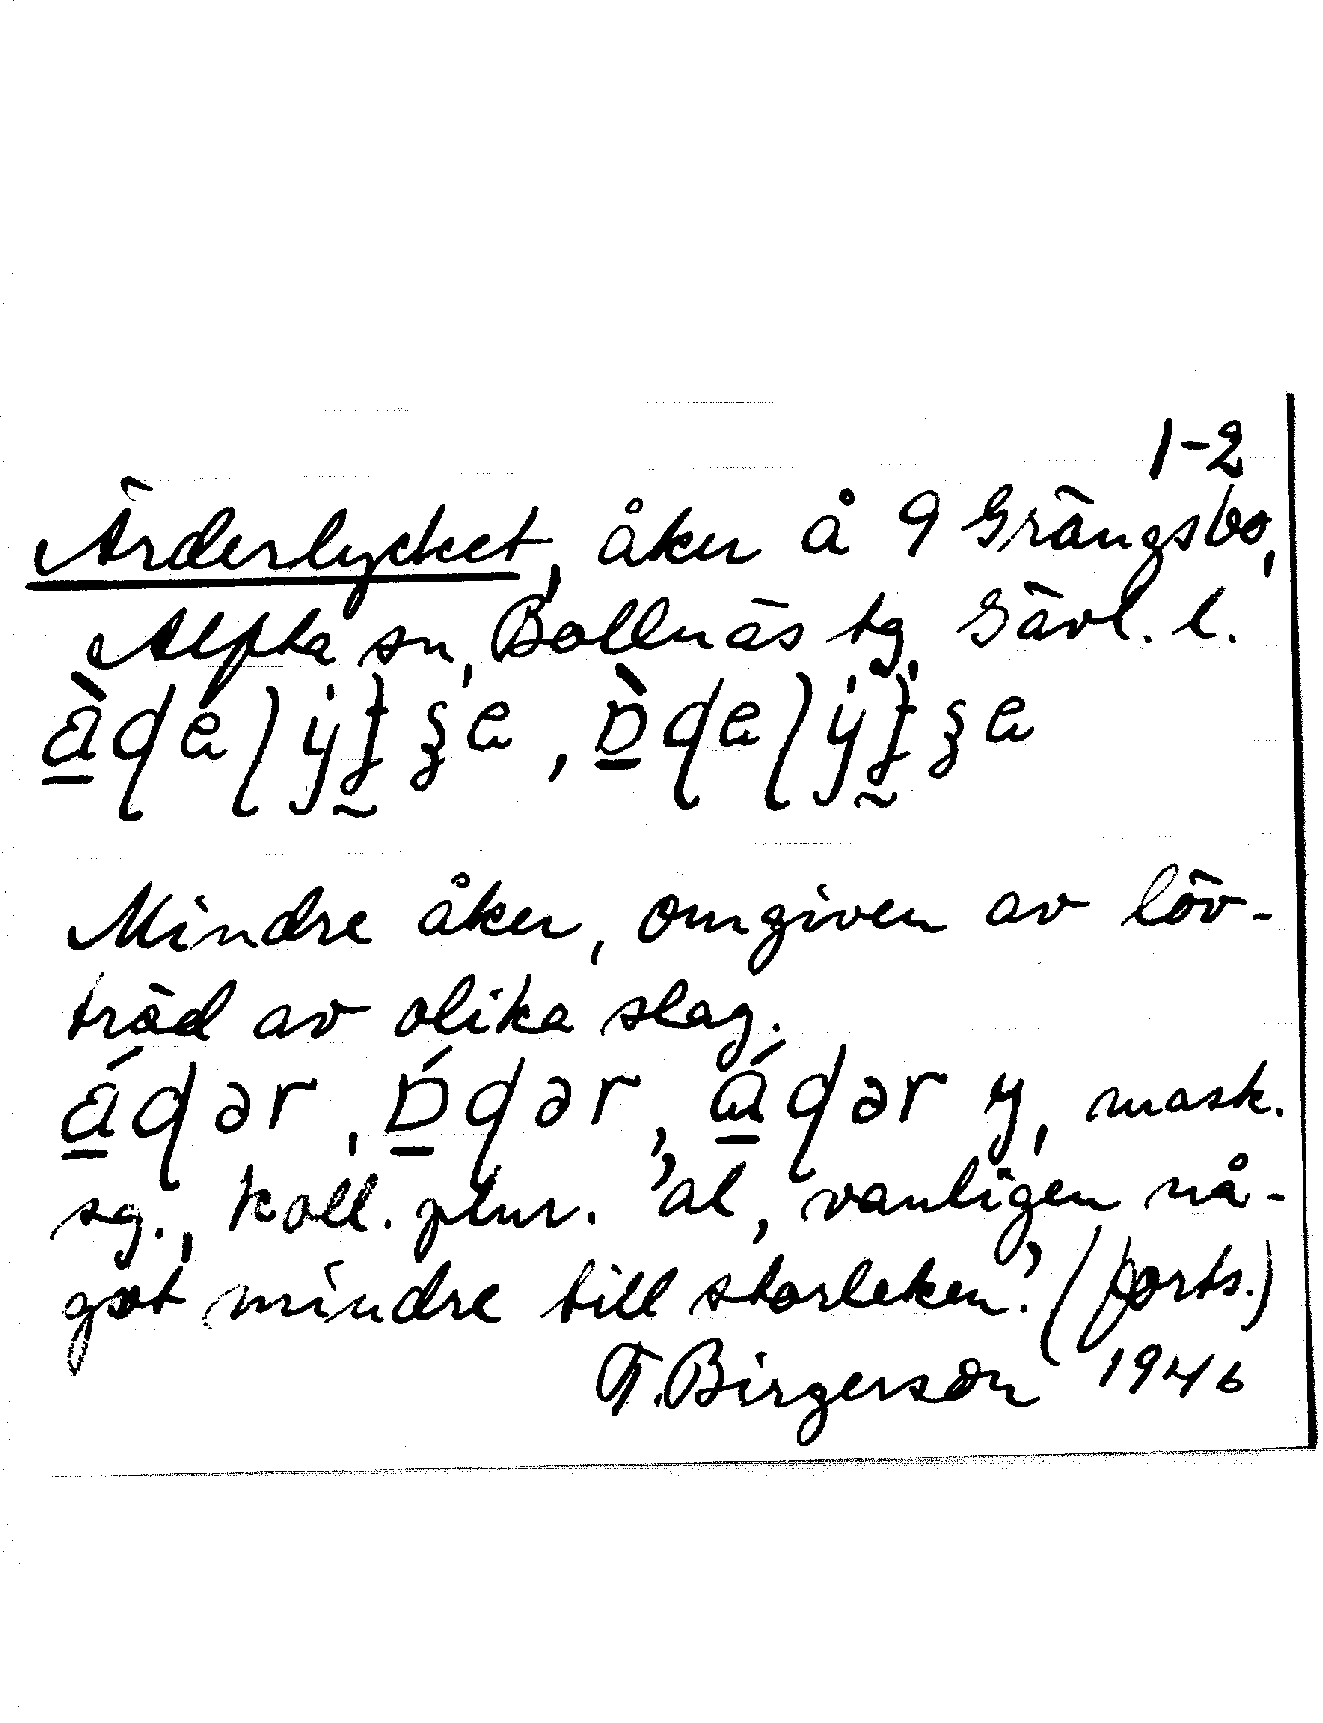 1-2
Ärderlycket, åker å 9 Grängsbo,
Alfta sn, Bollnäs tg, Gävl. l.
Mindre åker, omgiven av löv-
träd av olika slag.
mask.
sg., koll. plur. 'al, vanligen nå-
got mindre till storleken.' (forts.)
T. Birgerson 1946